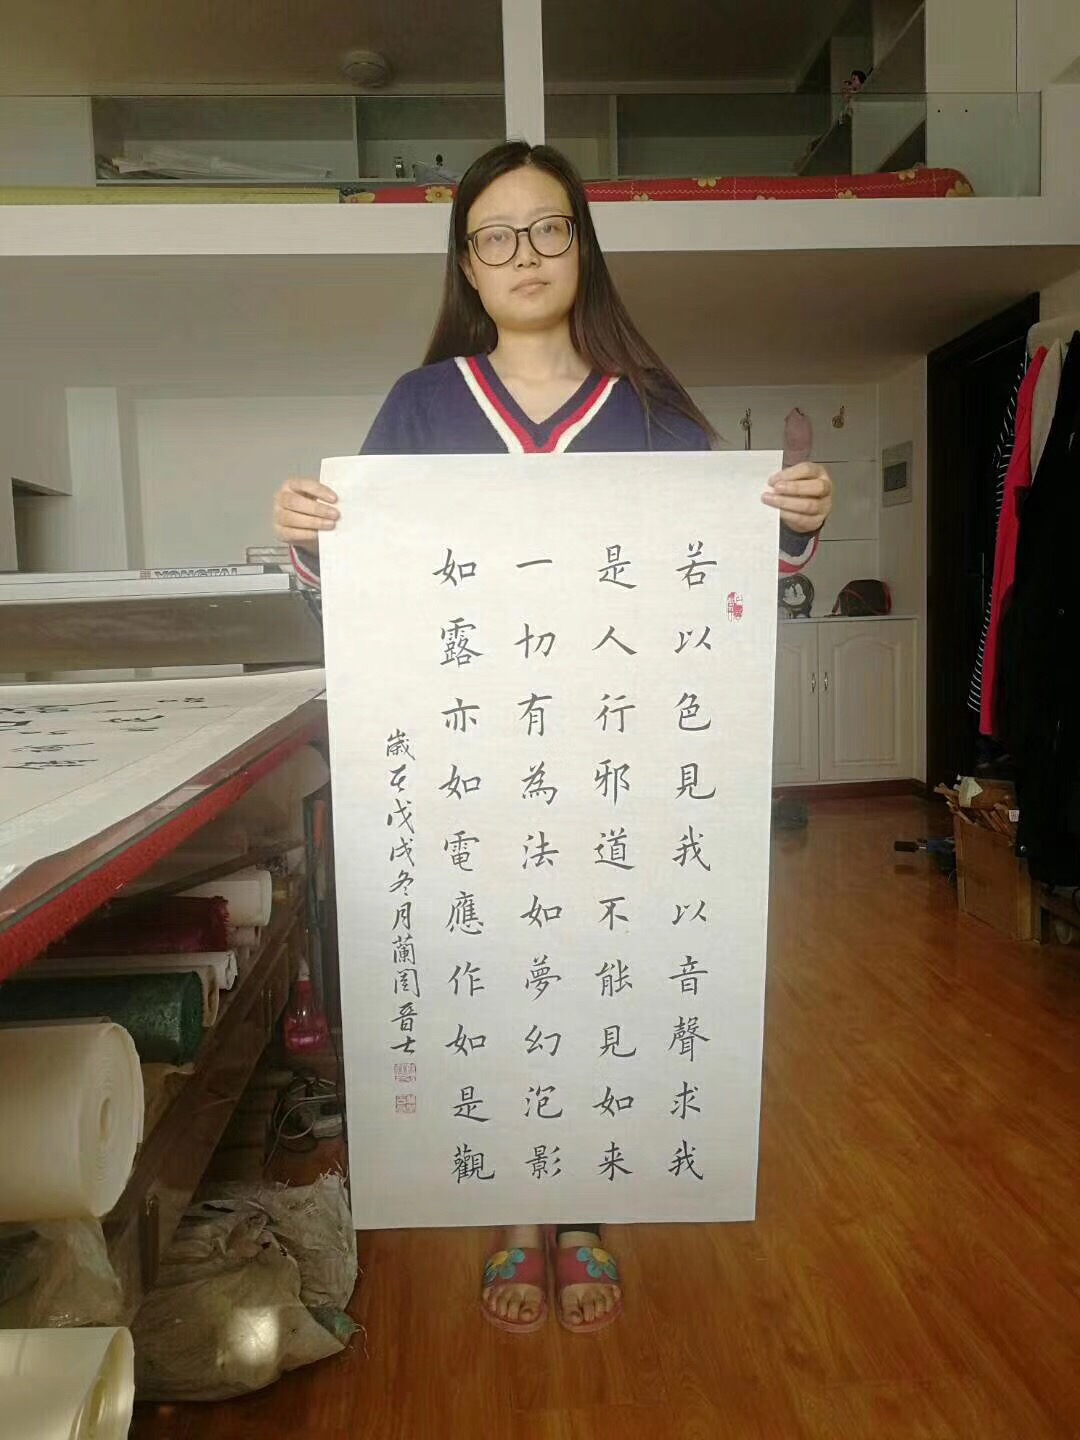 若以色見我以音聲求我
是人行邪道不能見如来
一切有為法如夢幻泡影
如露亦如電應作如是觀
歲在戊戌冬月蘭閣晉士
YONGTAI